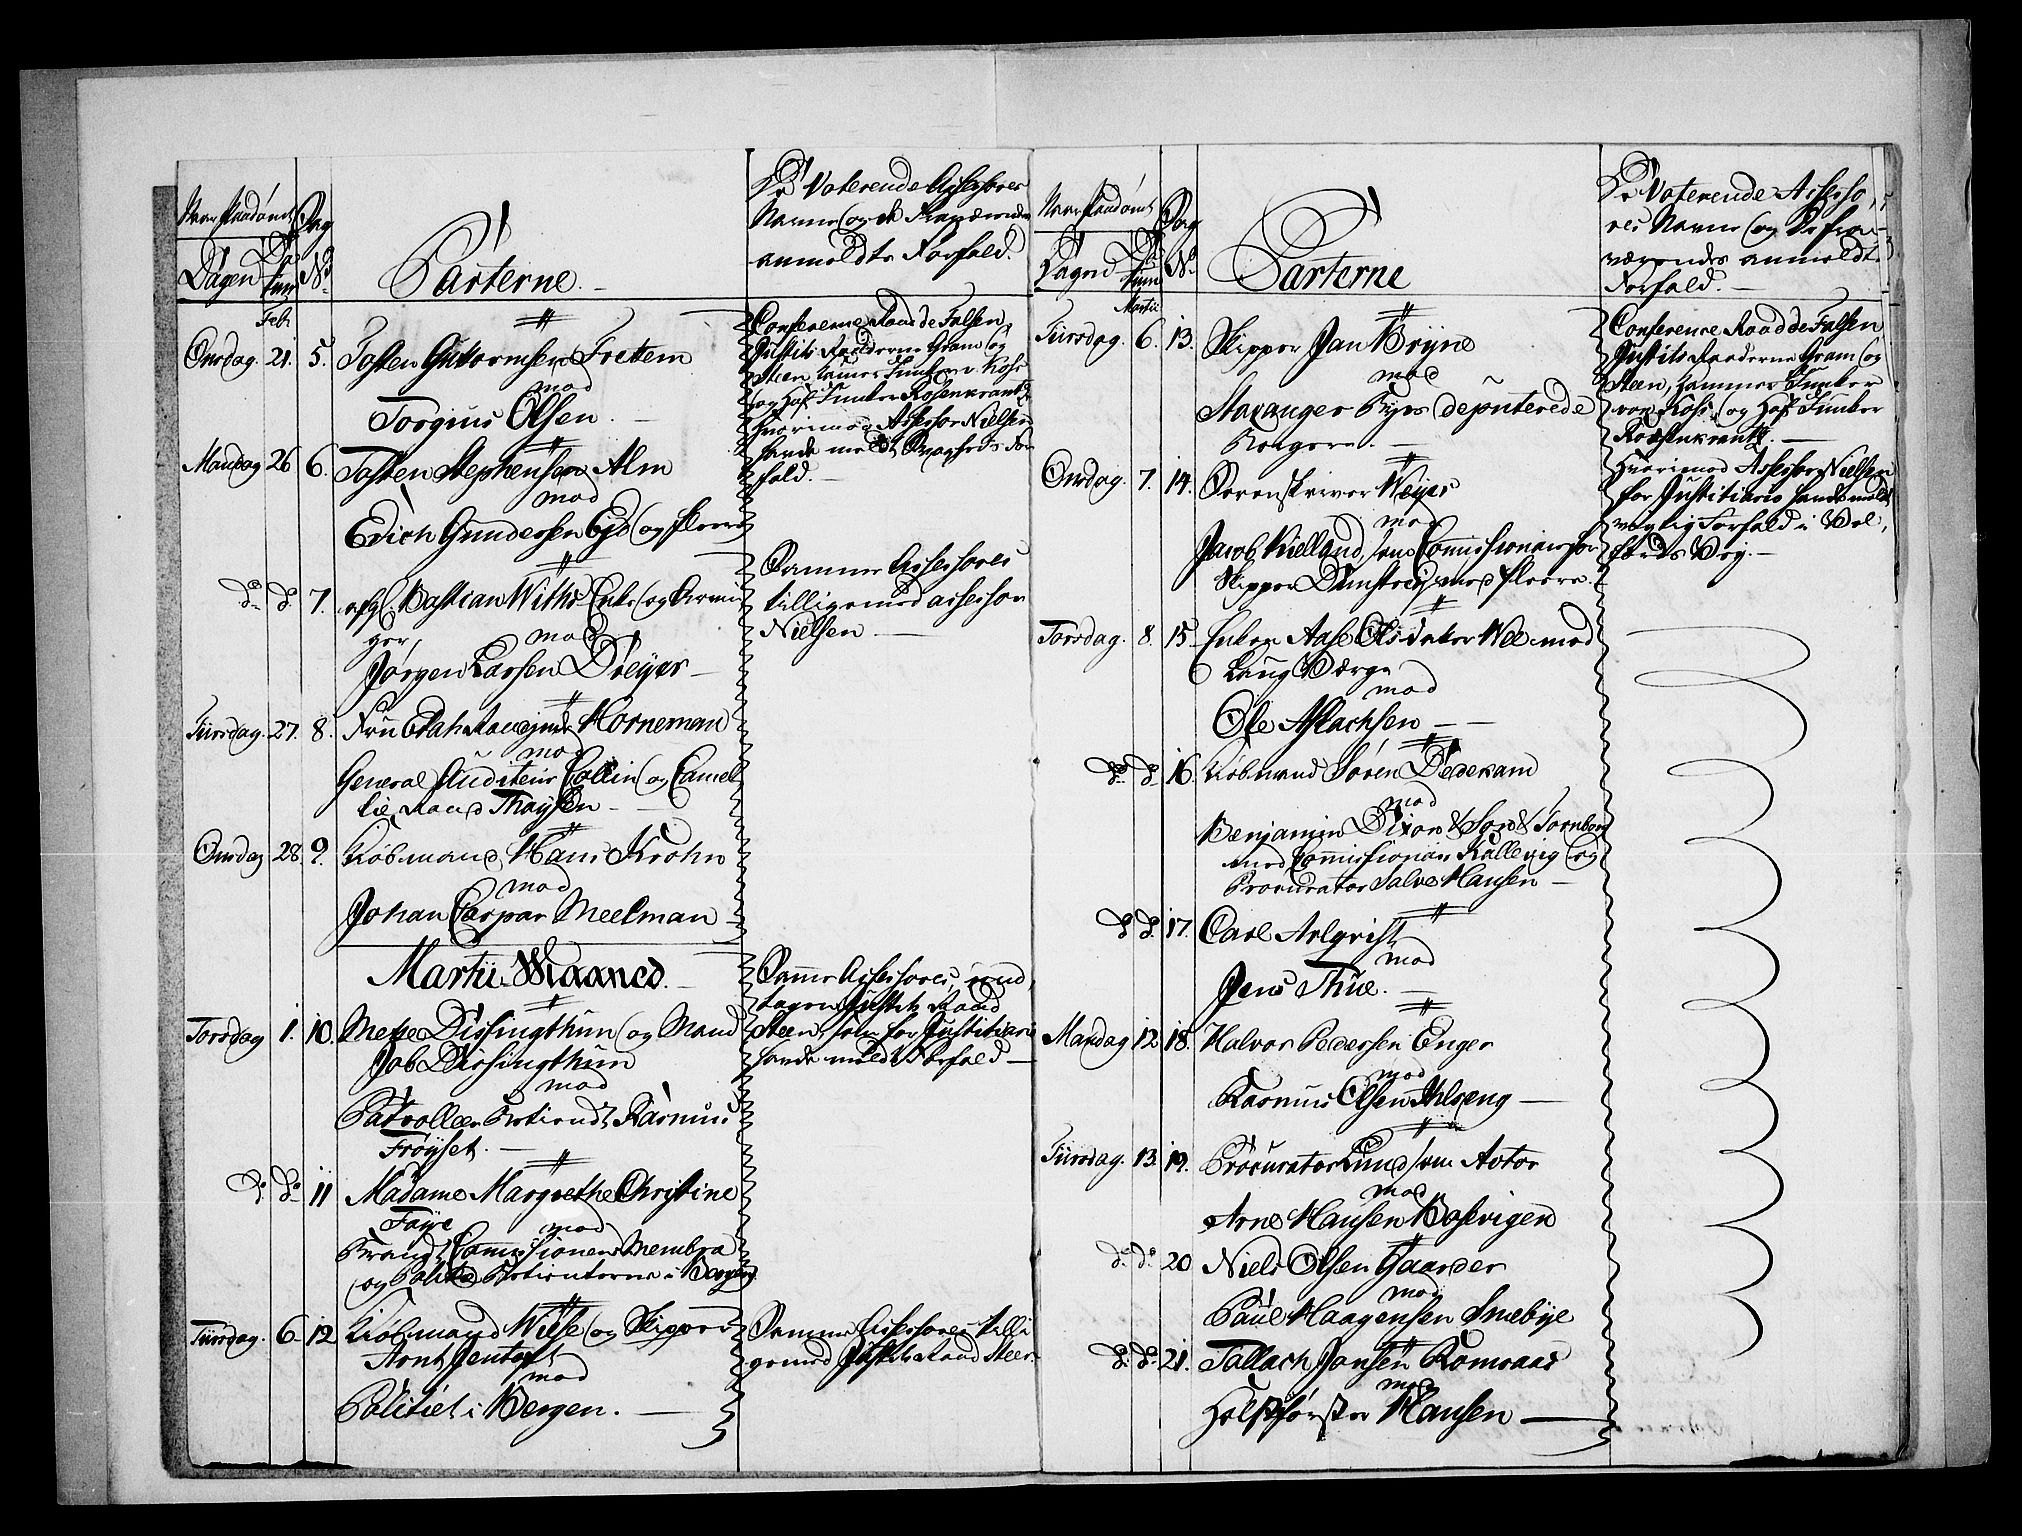 Dag
Dagen
No
Parterne.
De Voterende Assessorer
Navne og de Fraværendes
anmeldte Forfald.
Feb
Onsdag. 21. 5. Tosten Guttormsen Frettem
mod
Torgius Olsen.
Conference Raad de Falsen,
Justits Raaderne Gram og
Steen, Kammer Junker v. Koss
og Hof Junker Rosenkrantz
hvorimod Assessor Nielsen
havde meldt
fald.
Mandag 26 6. Tosten Stephensen Alm
mod
Erich Gundersen Eje og fleere
do do 7. afgl. Bastian Withs Enke og Arvin
ger
mod
Jørgen Larsen Dreyer
Samme Assessores
tilligemed assessor
Nielsen
Tiirsdag. 27. 8. Fru Etats Raadinde Horneman
mod
General Auditeur Collin og Cancel
lie Raad Thaysen
Onsdag 28. 9. Kiøbmand Hans Krohn
mod
Johan Caspar Meelman
Martii Maaned.
Torsdag 1. 10. Mette Dissingthun og Mand
Job Dissingthun
mod
Patroller Betiendt Rasmus
Frøyset.
Samme Assessores, und
tagen Justits Raad
Steen, som for Justitiari
havde meldt Forfald
do do 11 Madame Margrethe Christine
Faye
mod
Brandt Commissionens Membra
og Politie Betienterne i Bergen
Tiirsdag. 6. 12 Kiøbmand Wilse og Skipper
Arnt Jentoft
mod
Politiet i Bergen.
Samme Assessores tilli
gemed Justits Raad Steen.
Dag
Dagen
No
Parterne
De Voterende Assesso,
res Navne og De fra-
værendes anmeldte
Forfald.
Martii
Tiirsdag. 6. 13. Skipper Jan Bryne
mod
Stavanger Byes deputerede
Borgere.
Conference Raad de Falsen
Justits Raaderne Gram og
Steen, Kammer Junker
von Koss og Hof Junker
Rosenkrantz.
Hvorimod Assessor Nielsen
for Justitiario havde meldt
vigtig Forfald i Vel,
færds Vey.
Onsdag. 7. 14. Sorenskriver Weyer
mod
Jacob Kielland som Commissionair for
Skipper med fleere.
Torsdag. 8. 15. Enken Aase Olsdatter Wee med
Laug Værge
mod
Ole Aslachsen
do do 16. Kiøbmand Søren Dedekam
mod
Benjamin Dixon & Son & Tornborg
med Commissionair Kallevig og
Procurator Salve Hansen
do do 17. Carl Arlqvist
mod
Jens Thue.
Mandag 12 18. Halvor Pedersen Enger
mod
Rasmus Olsen Ahlseng
Tiirsdag. 13. 19. Procurator Lund som Actor
mod
Arne Hansen Bosevigen
do do 20 Niels Olsen Gaarder
mod
Paul Haagensen Snebye
do do 21. Tallach Jansen Romsaas
mod
Holtzførster Hansen